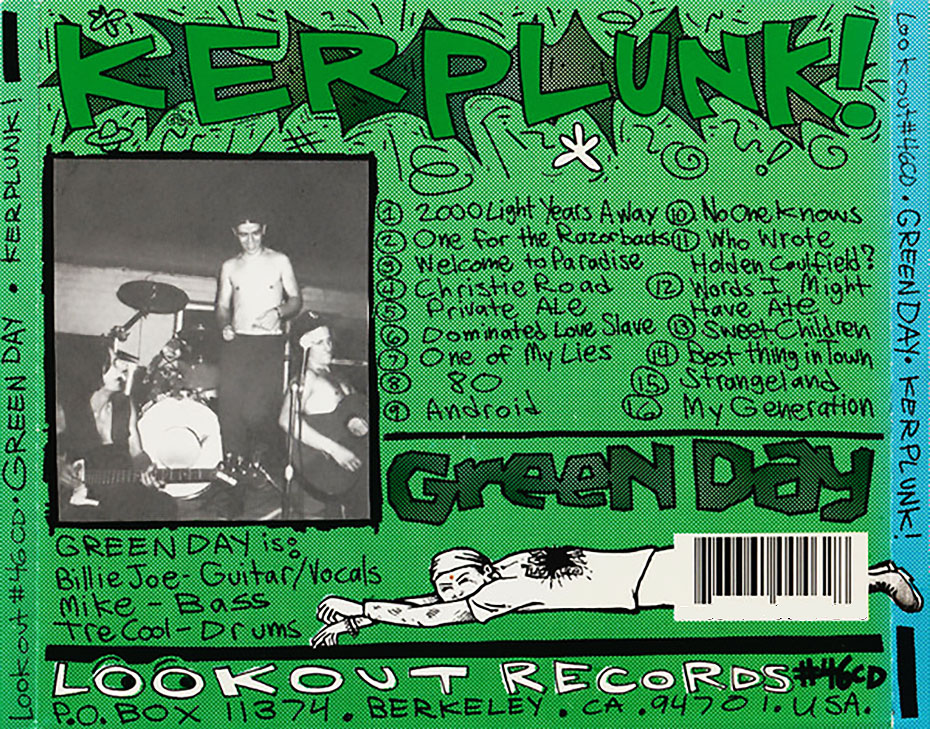 KERPLUNK!
① 2000 Light Years Away
② One for the Razorbacks
③ Welcome to Paradise
④ Christie Road
⑤ Private Ale
⑥ Dominated Love Slave
⑦ One of My Lies
⑧ 80
⑨ Android
⑩ No One Knows
⑪ Who Wrote
Holden Caulfield?
⑫ Words I Might
Have Ate
⑬ Sweet Children
⑭ Best thing in Town
⑮ Strangeland
⑯ My Generation
Green Day
GREEN DAY is:
Billie Joe - Guitar/Vocals
Mike - Bass
Tre Cool - Drums
LOOKOUT RECORDS #46CD
P.O. BOX 11374 . BERKELEY . CA . 94701 . USA.
Lookout #46CD • GREEN DAY • KERPLUNK!
Lookout #46CD • GREEN DAY • KERPLUNK!